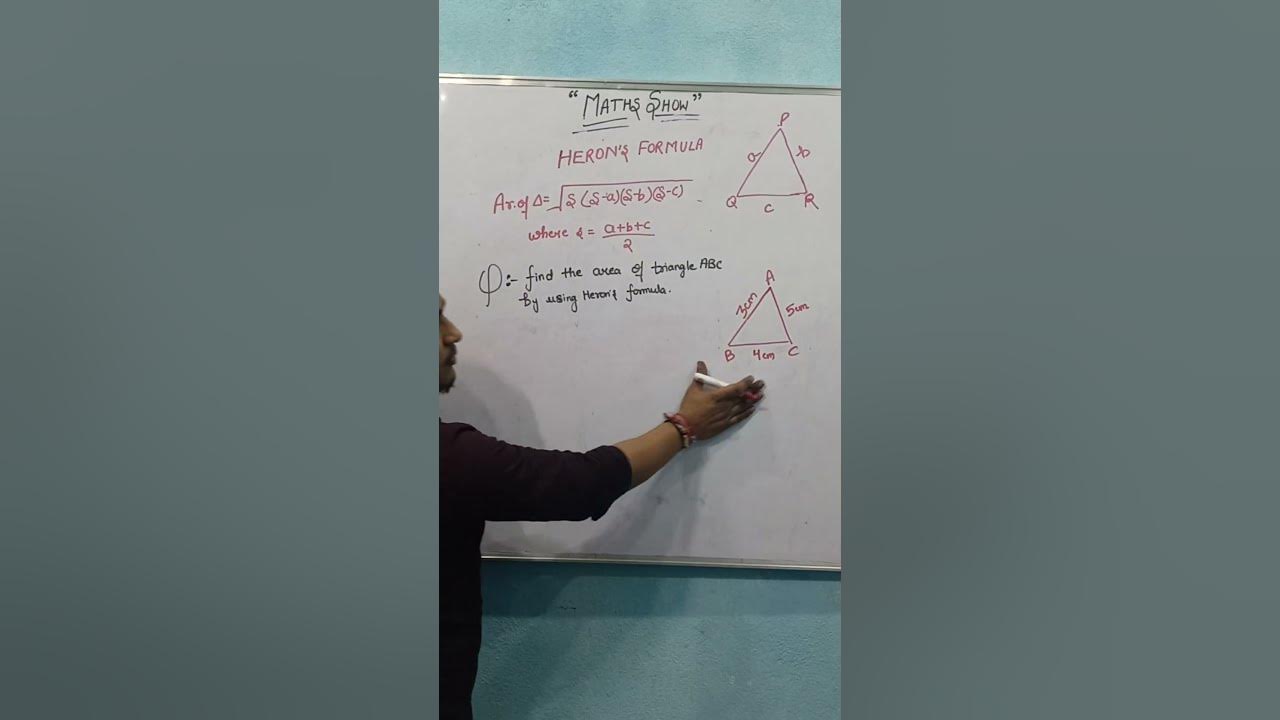 “MATHS SHOW”
HERON'S FORMULA
Ar. of Δ = √S(S-a)(S-b)(S-c)
where s = a+b+c
2
P
a
b
Q
c
R
Q:- find the area of triangle ABC
by using Heron's formula.
A
3cm
5cm
B
4cm
C